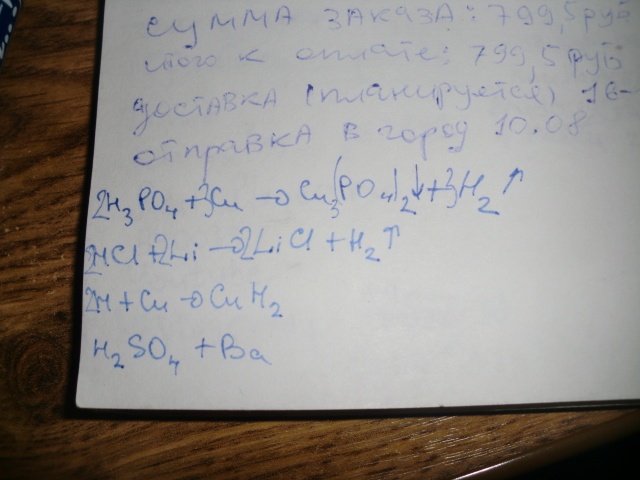 сумма заказа: 799,5 руб
итого к оплате: 799,5 руб
доставка (планируется) 16-
отправка в город 10.08
2H₃PO₄ + 3Cu → Cu₃(PO₄)₂↓ + 3H₂↑
2HCl + 2Li → 2LiCl + H₂↑
2H + Cu → CuH₂
H₂SO₄ + Ba